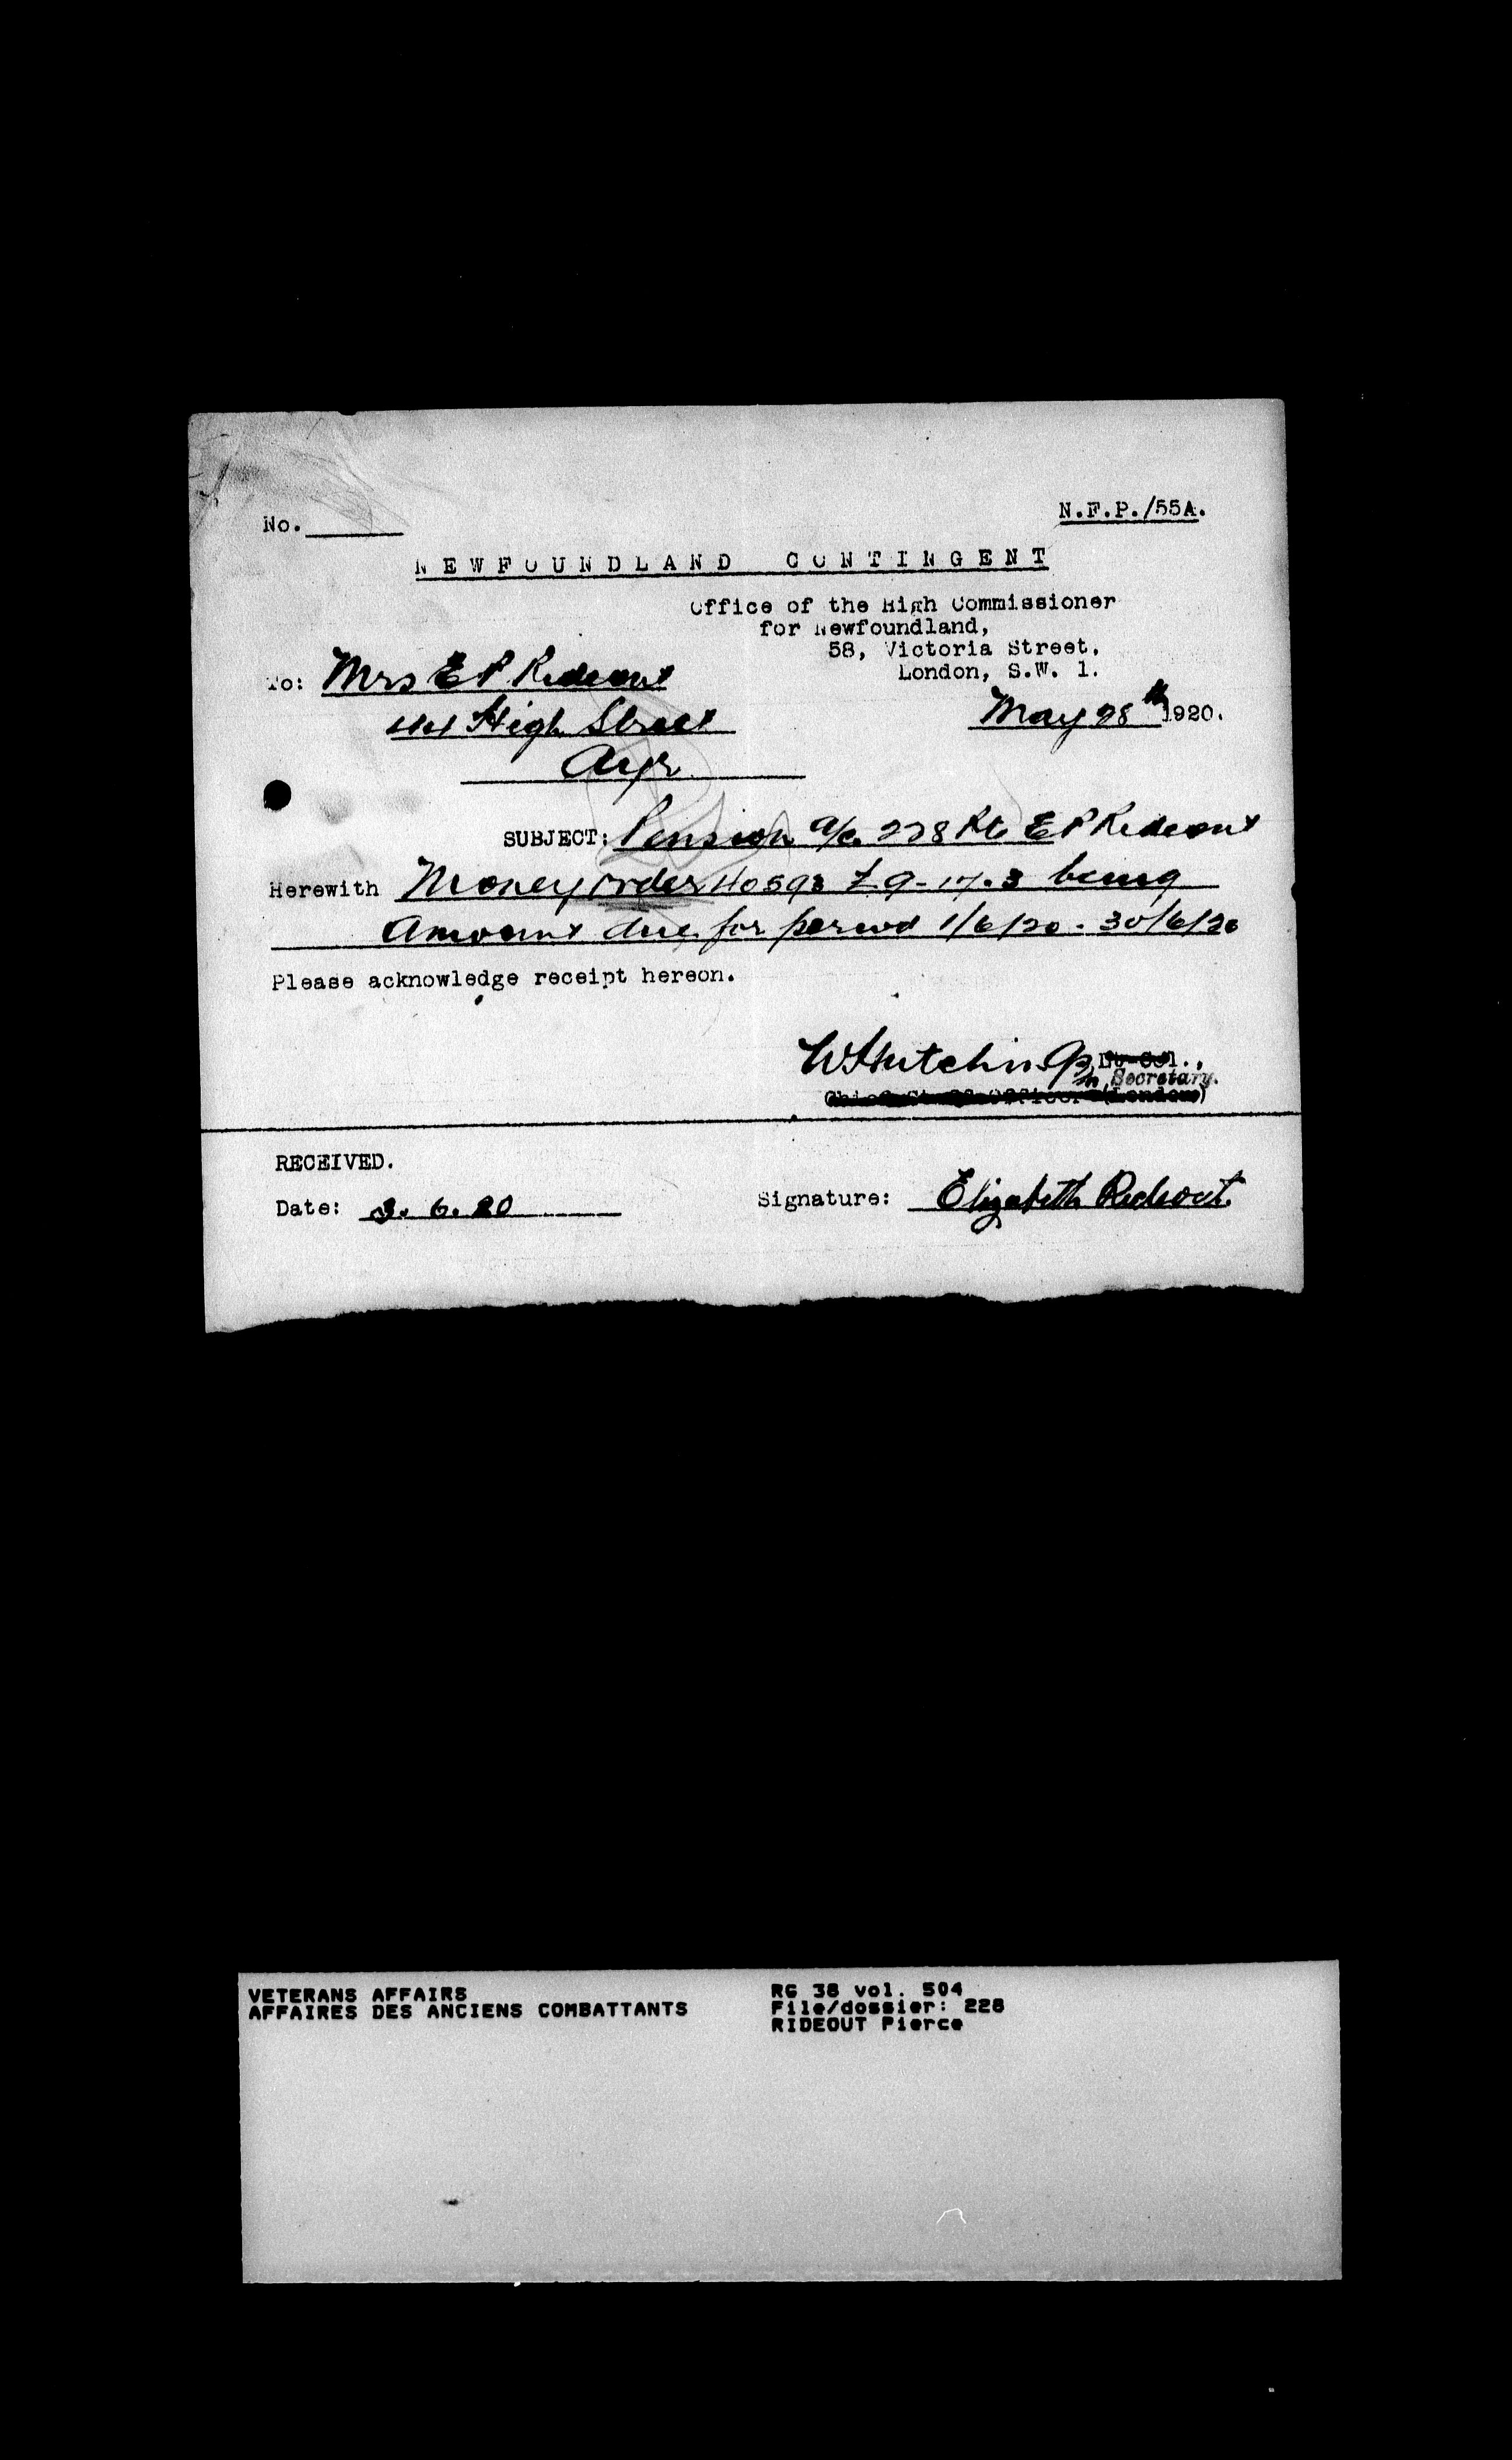 No.
N.F.P./55A.
NEWFOUNDLAND CONTINGENT
Office of the High Commissioner
for Newfoundland,
58, Victoria Street,
London, S.W. 1.
To: Mrs E P Rideout
High Street
Ayr
May 28th 1920.
SUBJECT: Pension a/c. 228 Pte E P Rideout
Herewith Money order 40593 £9-17.3 being
Amount due for period 1/6/20 - 30/6/20
Please acknowledge receipt hereon.
Lt-Col.,
Secretary.
Chief Staff Officer (London)
RECEIVED.
Date: 3. 6. 20
Signature: Elizabeth Rideout.
VETERANS AFFAIRS
AFFAIRES DES ANCIENS COMBATTANTS
RG 38 vol. 504
File/dossier: 228
RIDEOUT Pierce